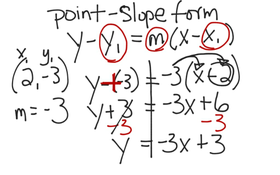 point-slope form
y-y₁ = m(x-x₁)
x₁ y₁
(2,-3)
y+3) = -3(x-2)
m=-3
y+3 = -3x+6
-3 -3
y = -3x+3